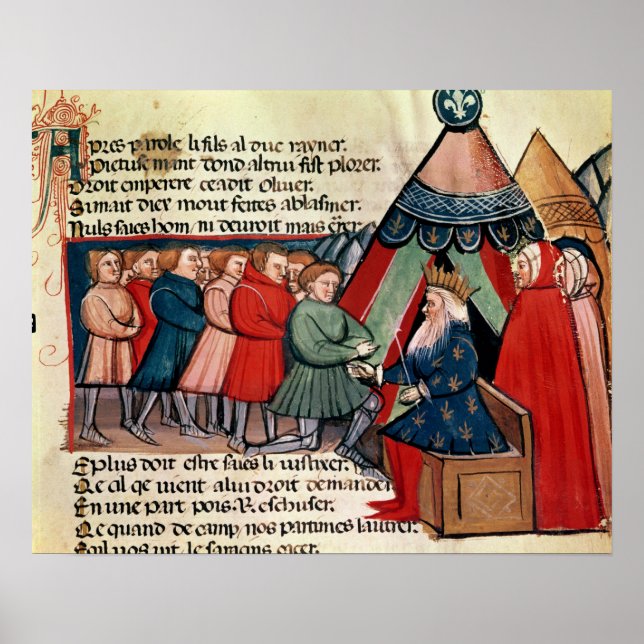 Apres parole li fils al duc rayner.
Pietusemant dond altrui fist plorer.
Droit emperere ce a dit Oliuer.
Si mait dice mout feites ablasmer
Nuls saies hom ni deuroit mais
E plus doit estre saies li iustixer.
Qe cil qe uient a lui droit demander
En une part pois
Qe quand de camp nos partimes lautrer
le saracins